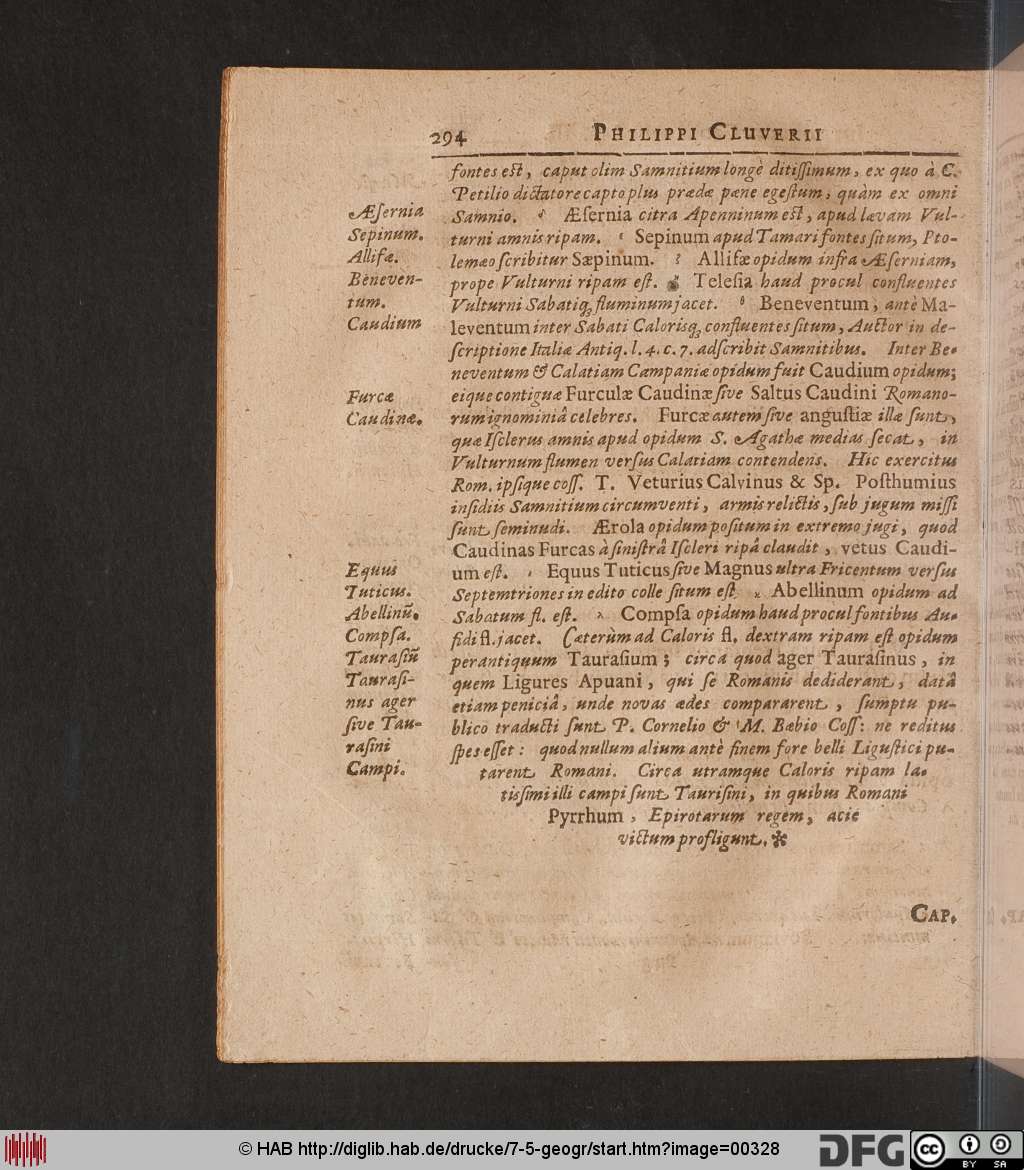 294 PHILIPPI CLUVERII
fontes est, caput olim Samnitium longè ditiſſimum, ex quo à C.
Petilio dictatore capto plus prædæ pæne egeſtum, quàm ex omni
Æſernia
Samnio. Æſernia citra Apenninum eſt, apud lævam Vul-
Sepinum.
turni amnis ripam. Sepinum apud Tamari fontes ſitum, Pto-
Allifæ.
lemæo ſcribitur Sæpinum. Allifæ opidum infra Æſerniam,
Beneven-
prope Vulturni ripam eſt. Teleſia haud procul confluentes
tum.
Vulturni Sabatiq; fluminum jacet. Beneventum, antè Ma-
Caudium
leventum inter Sabati Calorisq; confluentes ſitum, Auctor in de-
ſcriptione Italiæ Antiq. l. 4. c. 7. adſcribit Samnitibus. Inter Be-
neventum & Calatiam Campaniæ opidum fuit Caudium opidum;
Furcæ
eique contiguæ Furculæ Caudinæ ſive Saltus Caudini Romano-
Caudinæ.
rum ignominiâ celebres. Furcæ autem ſive anguſtiæ illæ ſunt,
quæ Iſclerus amnis apud opidum S. Agathæ medias ſecat, in
Vulturnum flumen verſus Calatiam contendens. Hic exercitus
Rom. ipſique coſſ. T. Veturius Calvinus & Sp. Poſthumius
inſidiis Samnitium circumventi, armis relictis, ſub jugum miſſi
ſunt ſeminudi. Ærola opidum poſitum in extremo jugi, quod
Caudinas Furcas à ſiniſtrâ Iſcleri ripâ claudit, vetus Caudi-
Equus
um eſt. Equus Tuticus ſive Magnus ultra Fricentum verſus
Tuticus.
Septemtriones in edito colle ſitum eſt Abellinum opidum ad
Abellinũ.
Sabatum fl. eſt. Compſa opidum haud procul fontibus Au-
Compſa.
fidi fl. jacet. Cæterùm ad Caloris fl. dextram ripam eſt opidum
Tauraſiũ
perantiquum Tauraſium; circa quod ager Tauraſinus, in
Tauraſi-
quem Ligures Apuani, qui ſe Romanis dediderant, datâ
nus ager
etiam peniciâ, unde novas ædes compararent, ſumptu pu-
ſive Tau-
blico traducti ſunt P. Cornelio & M. Bæbio Coſſ: ne reditus
raſini
ſpes eſſet: quod nullum alium antè finem fore belli Liguſtici pu-
Campi.
tarent Romani. Circa utramque Caloris ripam la-
tisſimi illi campi ſunt Tauriſini, in quibus Romani
Pyrrhum, Epirotarum regem, acie
victum profligunt.*
CAP.
© HAB http://diglib.hab.de/drucke/7-5-geogr/start.htm?image=00328
DFG
cc BY SA